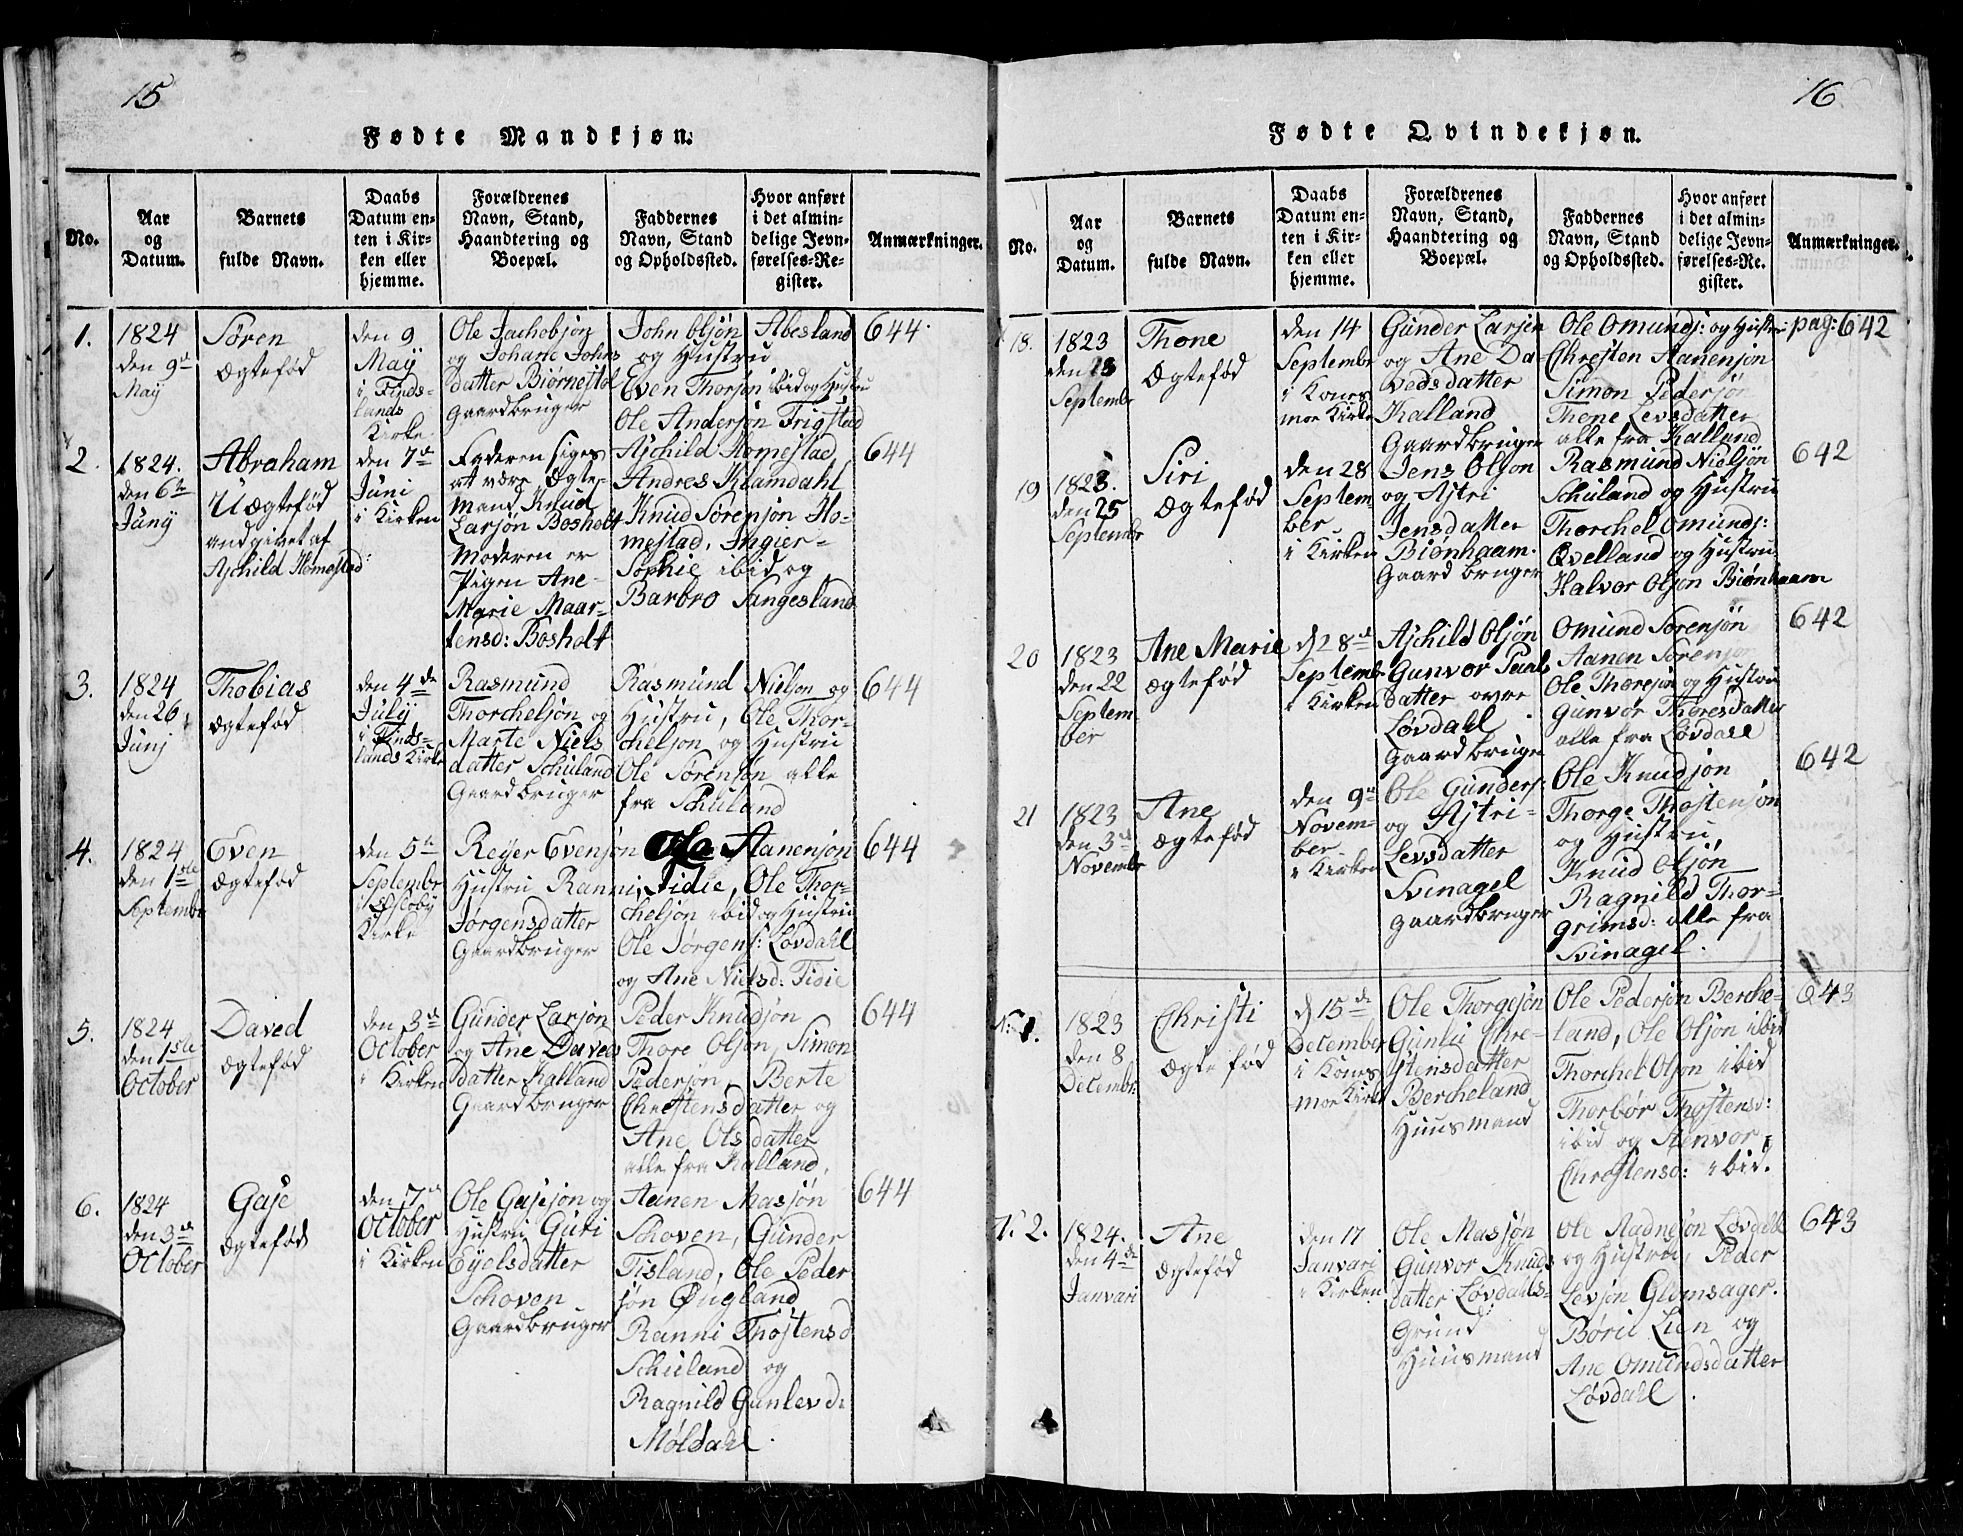 15
Fødte Mandkjøn.
No.
Aar
og
Datum.
Barnets
fulde Navn.
Daabs
Datum en-
ten i Kir-
ken eller
hjemme.
Forældrenes
Navn, Stand,
Haandtering og
Boepæl.
Faddernes
Navn, Stand
og Opholdssted.
Hvor anført
i det almin-
delige Jevn-
førelses-Re-
gister.
Anmærkninger.
1.
1824
den 9de
Maij
Søren
Ægtefød
den 9
Maij
i Finds-
lands
Kirke
Ole Jachobsøn
og Johane Johns
datter Biørnestøl
Gaardbruger
John Olsøn Abesland
og Hustru
Even Thorsøn ibid og Hustru
Ole Andersøn Trigstad
644.
2.
1824.
den 6te
Junij
Abraham
Uægtefød
andgivet af
Aschild Homestad:
den 7de
Juni
i Kirken
Faderen siges
at være Ægte-
mand Knud
Larsøn Bosholt
Moderen er
Pigen Ane-
Marie Maar-
tensd: Bosholt
Aschild Homestad,
Andres Klamdahl
Knud Sørensøn Ho-
mestad, Ingier-
Sophie ibid og
Barbro Sangesland
644
3.
1824
den 26
Junj
Thobias
ægtefød
den 4de
Julij
i Finds-
lands Kirke
Rasmund
Thorchelsøn og
Marte Niels
datter Schuland
Gaardbruger
Rasmund Nielsøn og
Hustru, Ole Thor-
chelsøn og Hustru
Ole Sørensøn alle
fra Schuland
644
4.
1824
den 1ste
Septembr
Even
Ægtefød
den 5te
Septembr
Kirke
Reyer Evensøn
Hustru Ranni
Jorgensdatter
Gaardbruger
Ole Aanensøn
Tidie, Ole Thor-
chelsøn ibid og Hustru
Ole Jørgens: Løvdahl
og Ane Nielsd: Tidie
644
5.
1824
den 1ste
October
Daved
Ægtefød
den 3de
October
i Kirken
Gunder Larsøn
og Ane Daveds
datter Kalland
Gaardbruger
Peder Knudsøn
Thore Olsøn, Simon
Pedersøn, Berte
Chrestensdatter og
Ane Olsdatter
alle fra Kalland,
644
6.
1824
den 3de
October
Gase
Ægtefød
den 17de
October
i Kirken
Ole Gasesøn og
Hustru Guri
Eyelsdatter
Schoven
Gaardbruger
Aanen Massøn
Schoven, Gunder
Tisland, Ole Peder
søn Øugland
Ranni Thostensd
Schuland og
Ragnild Gunlevd:
Møldahl.
644
16
Fødte Qvindekjøn.
No.
Aar
og
Datum.
Barnets
fulde Navn.
Daabs
Datum en-
ten i Kir-
ken eller
hjemme.
Forældrenes
Navn, Stand,
Haandtering og
Boepæl.
Faddernes
Navn, Stand
og Opholdssted.
Hvor anført
i det almin-
delige Jevn-
førelses-Re-
gister.
Anmærkninger.
18.
1823
den 13
Septembr
Thone
Ægtefød
den 14
Septembr
i Kones
moe Kirke
Gunder Larsen
og Ane Da-
vedsdatter
Kalland
Gaardbruger
Ole Omunds: og Hustru
Chresten Aanensøn
Simon Pedersør
Thone Levsdatter
alle fra Kalland
pag: 642
19
1823.
den 25
Septembr
Siri
Ægtefød
den 28
Septem-
ber
i Kirken
Jens Olsøn
og Astri
Jensdatter
Biønhaam.
Gaardbruger
Rasmund Nielsøn
Schuland og Hustru
Thorchel Omunds:
Qvelland og Hustru
Halvor Olsøn Biønhaam
642
20
1823
den 22
Septem
ber
Ane Marie
ægtefød
d 28de
Septembr
i Kirken
Aschild Olsøn
Gunvor Paals
datter øvre
Løvdahl
Gaardbruger
Omund Sørensøn
Aanen Sørensøn
Ole Thoresøn og Hustru
Gunvor Thoresdatter
alle fra Løvdahl
642
21
1823
den 3de
Novembr
Ane
Ægtefød
den 9de
Novem-
ber
i Kirken
Ole Gunders:
og Astri-
Levsdatter
Svinagel
gaardbruger
Ole Knudsøn
Thorge Thostensøn
og Hustru
Knud Olsøn
Ragnild Thor-
grimsd: alle fra
Svinagel.
642
N: 1.
1823
den 8
Decembr
Christi
ægte fød
d 15de
December
i Kones
moe Kirke
Ole Thorgesøn
Gunlu Chre-
stensdatter
Bercheland
Huusmand
Ole Pedersøn Berche-
land, Ole Olsøn ibid
Thorchel Olsøn ibid
Thorbør Thostensd:
ibid og Aenvor
Christensd: ibid.
643
N. 2.
1824.
den 4de
Januari
Ane
Ægtefød
den 17
Januari
i Kirken
Ole Massøn
Gunvor Knuds
datter Løvdahls-
Grund
Huusmand
Ole Aadnesøn Løvdahl
og Hustru, Peder
Levsøn Glomsager.
Børil Lien og
Ane Omundsdatter
Løvdahl.
643